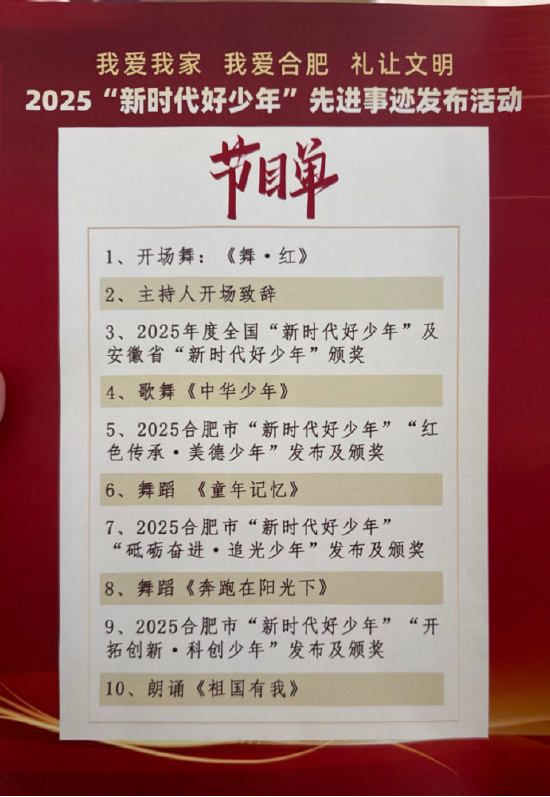 我爱我家 我爱合肥 礼让文明
2025“新时代好少年”先进事迹发布活动
节目单
1、开场舞：《舞·红》
2、主持人开场致辞
3、2025年度全国“新时代好少年”及
安徽省“新时代好少年”颁奖
4、歌舞《中华少年》
5、2025合肥市“新时代好少年”“红
色传承·美德少年”发布及颁奖
6、舞蹈 《童年记忆》
7、2025合肥市“新时代好少年”
“砥砺奋进·追光少年”发布及颁奖
8、舞蹈《奔跑在阳光下》
9、2025合肥市“新时代好少年”“开
拓创新·科创少年”发布及颁奖
10、朗诵《祖国有我》